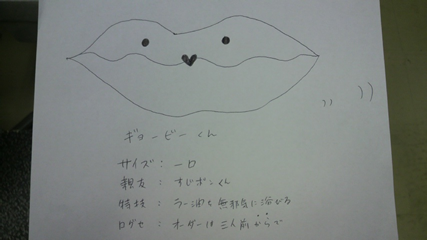 ギョーピーくん
サイズ： 一口
親友： すじポンくん
特技： ラー油を無邪気に浴びる
口グセ： オーダーは三人前からで